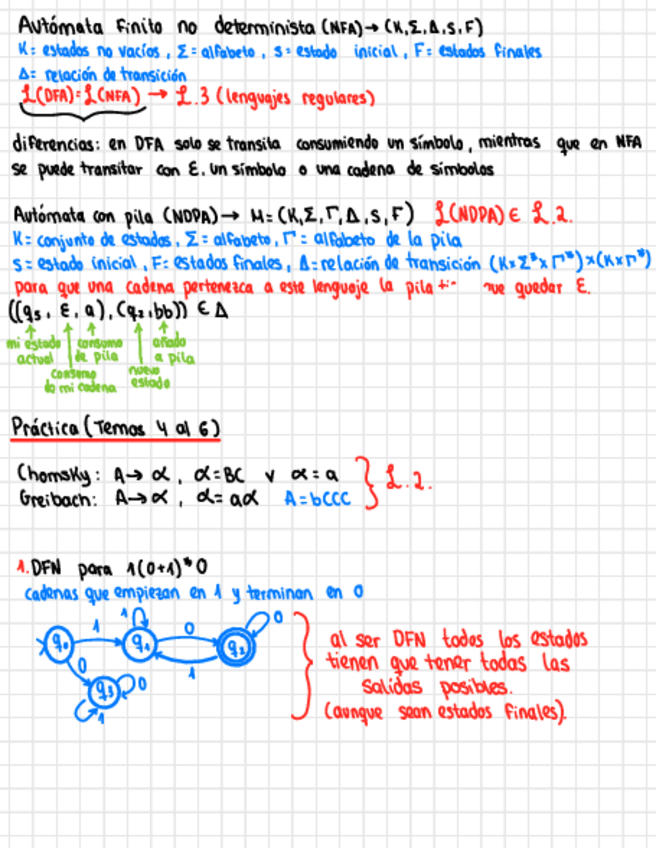 Autómata finito no determinista (NFA) → (K,Σ,Δ,s,F)
K= estados no vacíos, Σ= alfabeto, s= estado inicial, F= estados finales
Δ= relación de transición
ℒ(DFA)=ℒ(NFA) → ℒ.3 (lenguajes regulares)
diferencias: en DFA solo se transita consumiendo un símbolo, mientras que en NFA
se puede transitar con ε, un símbolo o una cadena de símbolos
Autómata con pila (NDPA) → M=(K,Σ,Γ,Δ,s,F) ℒ(NDPA) ∈ ℒ.2.
K= conjunto de estados, Σ= alfabeto, Γ= alfabeto de la pila
s= estado inicial, F= estados finales, Δ= relación de transición (K×Σ*×Γ*)×(K×Γ*)
para que una cadena pertenezca a este lenguaje la pila que quedar ε.
((q₅, ε, a), (q₂, bb)) ∈ Δ
mi estado actual
consumo de mi cadena
consumo de pila
nuevo estado
añado a pila
Práctica (Temas 4 al 6)
Chomsky: A → α, α=BC v α=a
Greibach: A → α, α=aα A=bCCC } ℒ.2.
1. DFN para 1(0+1)*0
cadenas que empiezan en 1 y terminan en 0
1 0
q₀ 1 q₁ 0 q₂
0 1
q₃ 0
1
al ser DFN todos los estados
tienen que tener todas las
salidas posibles.
(aunque sean estados finales).